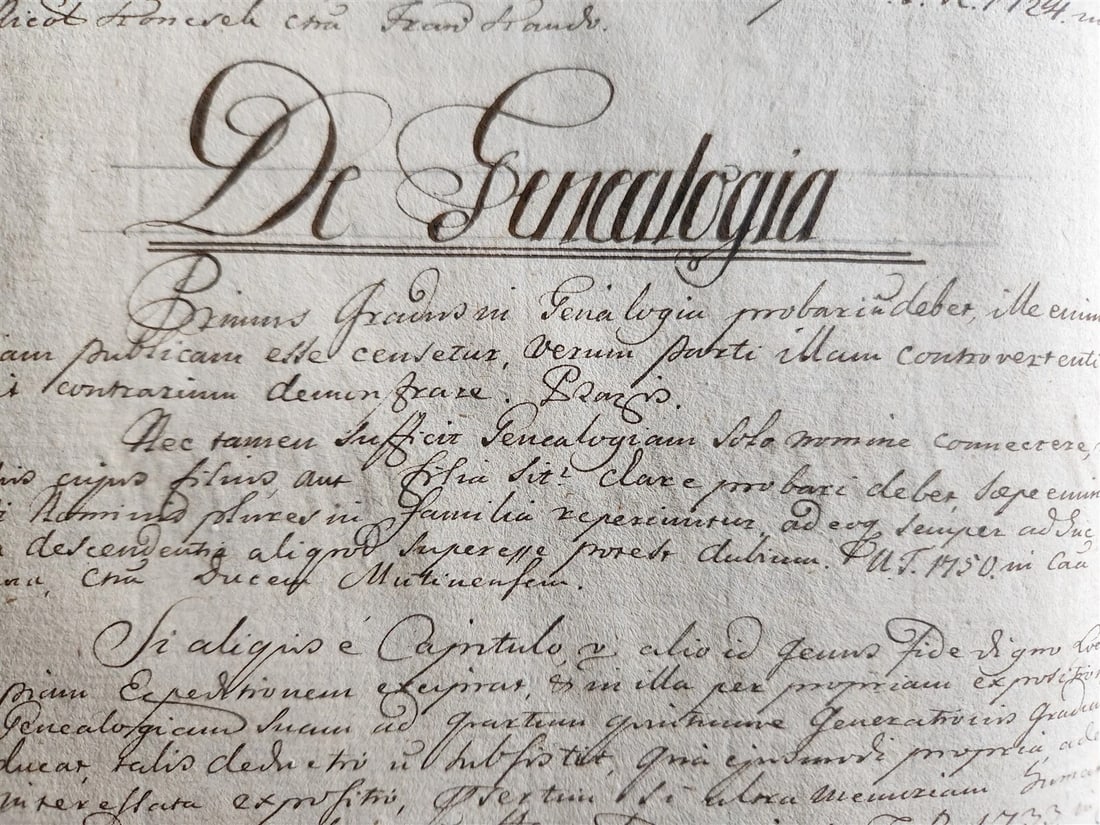 contra Franc
1724. in
De Genealogia
Primus Gradus in Genealogia probari ū debet, ille enim
am publicam esse censetur, verum parti illam controvertenti
contrarium demonstrare. Praxis.
Nec tamen sufficit Genealogiam solo nomine connectere,
cujus filius aut filia sit clare probari debet, sæpe enim
Nominis plures in familia reperiuntur, adeoq semper ad huc
descendentia aliquod superesse potest dubium. P U. T. 1750. in Caū
ctrā Ducem Mutinensem.
Si aliquis é Capitulo v̀ alio id genus Fide digno Loco
piam Expeditionem excipiat, & in illa per propriam expositio
Genealogiam suam ad quartum quintumve Generationis Gradum
ducat, talis deductio ū subsistit, quia ejusmodi propria, ade
interessata expositio, Psertim si ultra Memoriam humana
1733. in